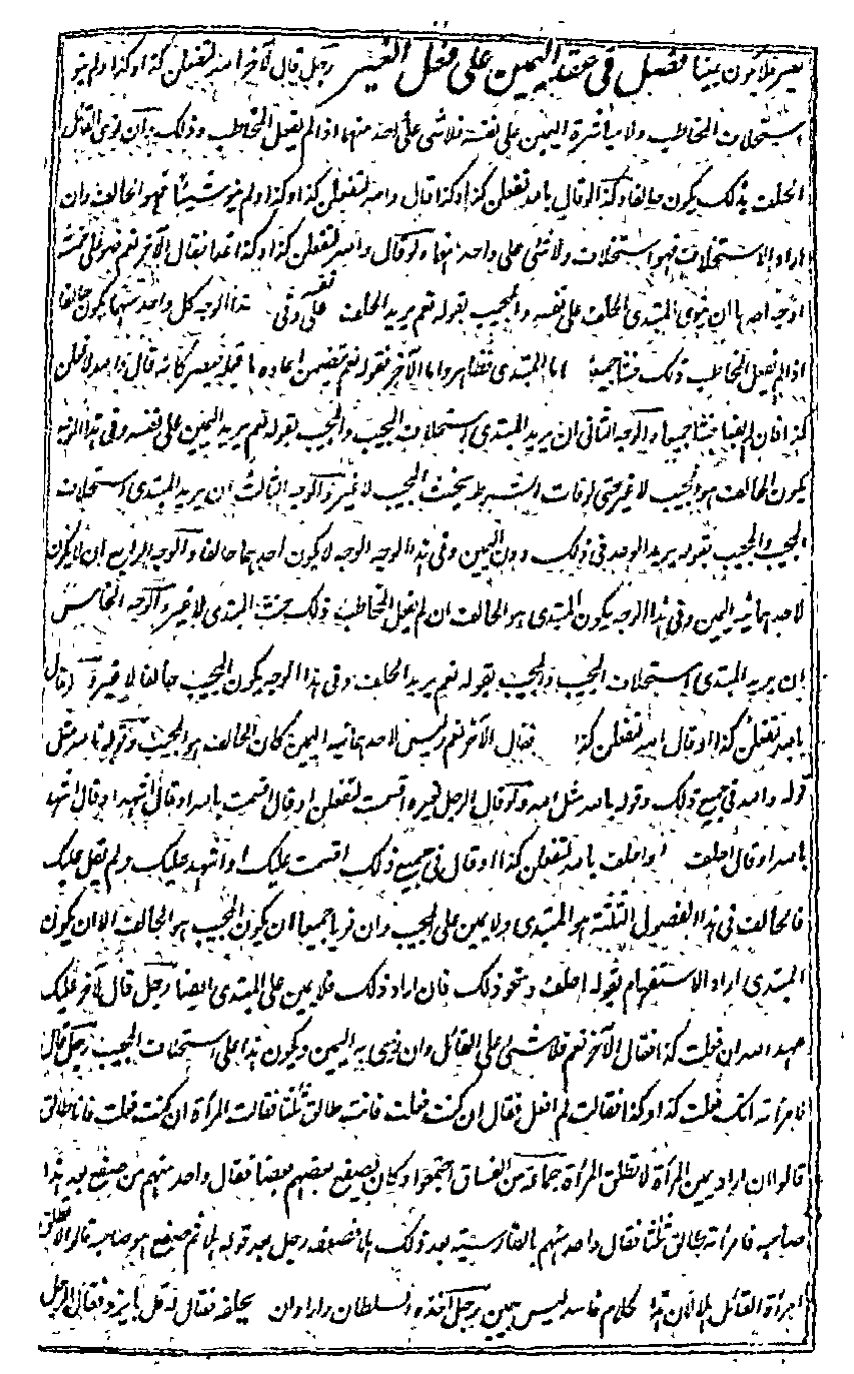 يصير فلا يكون يمينا فصل في عقد اليمين على فعل الغير رجل قال لآخر والله لتفعلن كذا وكذا ولم ينو
استحلاف المخاطب ولا مباشرة اليمين على نفسه فلا شئ على واحد منهما اذا لم يفعل المخاطب وذلك وان نوى القائل
الحلف بذلك يكون حالفا وكذا لو قال بالله لتفعلن كذا وكذا قال والله لتفعلن كذا وكذا ولم ينو شيئا فهو الحالف وان
اراد الاستحلاف فهو استحلاف ولا شئ على واحد منهما ولو قال والله لتفعلن كذا وكذا غدا فقال الآخر نعم فهو على خمسة
اوجه احدها ان ينوى المبتدى الحلف على نفسه والمجيب بقوله نعم يريد الحلف على نفسه وفى هذا الوجه كل واحد منهما يكون حالفا
اذا لم يفعل المخاطب ذلك حنثا جميعا اما المبتدى فظاهر واما الآخر فقوله نعم يتضمن اعادة ما قبله فيصير كانه قال والله لافعلن
كذا فان لم يفعل حنثا جميعا والوجه الثانى ان يريد المبتدى استحلاف المجيب والمجيب بقوله نعم يريد اليمين على نفسه وفى هذا الوجه
يكون الحالف هو المجيب لا غير حتى لو فات الشرط يحنث المجيب لا غير والوجه الثالث ان يريد المبتدى استحلاف
المجيب والمجيب بقوله يريد الوعد فى ذلك دون اليمين وفى هذا الوجه الوجه لا يكون احدهما حالفا والوجه الرابع ان لا يكون
لاحدهما نية اليمين وفى هذا الوجه يكون المبتدى هو الحالف ان لم يفعل المخاطب ذلك حنث المبتدى لا غير والوجه الخامس
ان يريد المبتدى استحلاف المجيب والمجيب بقوله نعم يريد الحلف وفى هذا الوجه يكون المجيب حالفا لا غير ولو قال
بالله لتفعلن كذا او قال والله لتفعلن كذا فقال الآخر نعم وليس لاحدهما نية اليمين كان الحالف هو المجيب وقوله تالله مثل
قوله والله فى جميع ذلك وقوله بالله مثل والله ولو قال الرجل لغيره اقسمت لتفعلن او قال اقسمت بالله او قال اشهد او قال اشهد
بالله او قال احلف او احلف بالله لتفعلن كذا او قال فى جميع ذلك اقسمت عليك او اشهد عليك ولم يقل عليك
فالحالف فى هذا الفصول الثلثة هو المبتدى ولا يمين على المجيب وان نويا جميعا ان يكون المجيب هو الحالف الا ان يكون
المبتدى اراد الاستفهام بقوله احلف ونحو ذلك فان اراد ذلك فلا يمين على المبتدى ايضا رجل قال لآخر عليك
عهد الله ان فعلت كذا فقال الآخر نعم فلا شئ على القائل وان نوى به اليمين ويكون هذا على استحلاف المجيب رجل قال
لامرأته انك فعلت كذا وكذا فقالت لم افعل فقال ان كنت فعلت فانت طالق ثلثا فقالت المرأة ان كنت فعلت فانا طالق
قالوا ان اراد يمين المرأة لا تطلق المرأة جماعة من الفساق اجتمعوا وكان يصفع بعضهم بعضا فقال واحد منهم من صفع بعد هذا
صاحبه فامرأته طالق ثلثا فقال واحد منهم بالفارسية بعد ذلك هلا فصفعه رجل بعد قوله هلا ثم صفع هو صاحبه قالوا لا تطلق
امرأة القائل هلا لان هذا كلام فاسد ليس بيمين رجل اخذه السلطان واراد ان يحلفه فقال له قل بايزد فقال الرجل